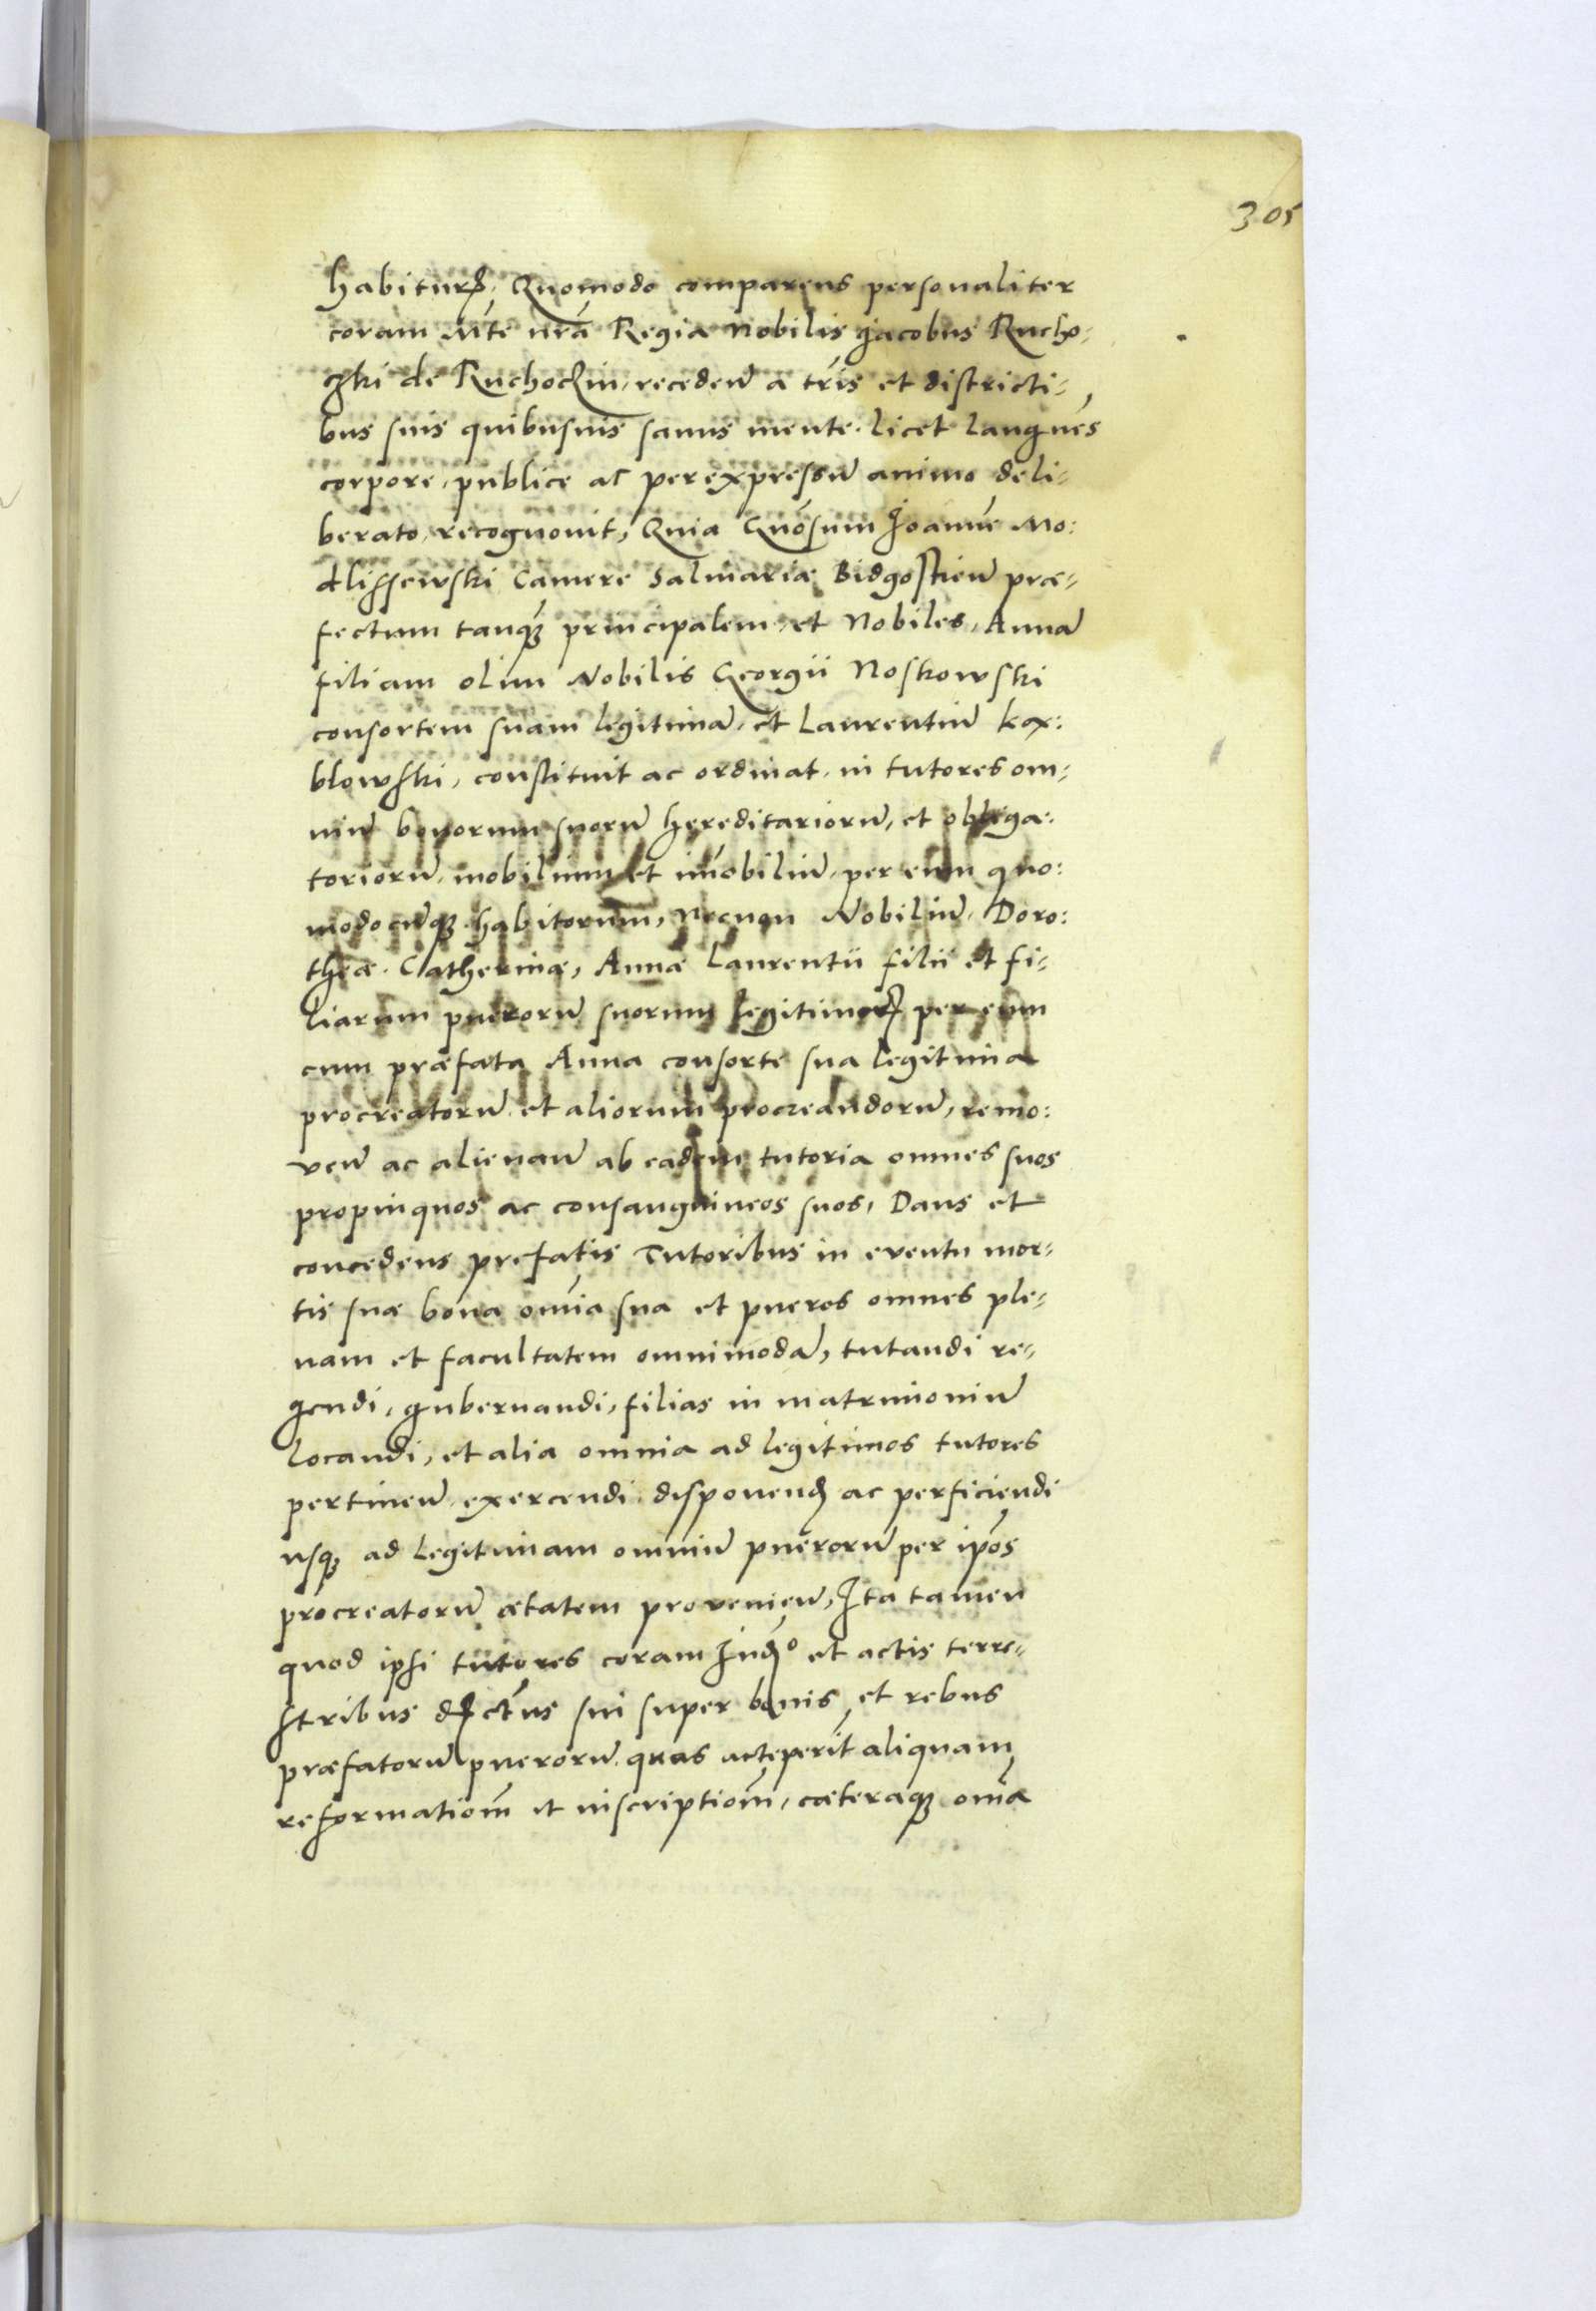 305
habiturꝭ. Quomodo comparens personaliter
coram Mte nrā Regia Nobilis Jacobus Rucho-
czki de Ruchoczin, recedeñ a tris et districti-
bus suis quibusuis sanus mente. licet langueñs
corpore, publice ac per expressũ animo deli-
berato, recognouit, Quia Gñosum Joannē Mo:
dlissewski Camere Salinariæ Bidgostieñ præ-
fectum tanqꝫ principalem, et Nobiles, Annã
filiam olim Nobilis Georgii Noskowski
consortem suam legitimã, et Laurentiũ kox:
blowski, constituit ac ordinat, in tutores om-
niũ bonorum suorũ hereditariorũ, et obliga-
toriorũ, mobilium et imobiliũ, per eum quo:
modocũqꝫ habitorum, Necnon Nobiliũ, Doro:
theæ. Catherinæ, Annæ Laurentii filii et fi-
liarum puerorũ suorum legitimorꝝ per eum
cum præfata Anna consorte sua legitima
procreatorũ et aliorum procreandorũ, remo:
ueñ ac alienañ ab eadem tutoria omnes suos
propinquos ac consanguineos suos, Dans et
concedens prefatis Tutoribus in euentu mor-
tis suæ bona omīa sua et pueros omnes ple-
nam et facultatem omnimodã, tutandi re-
gendi, gubernandi, filias in matrimoniũ
locandi, et alia omnia ad legitimos tutores
pertineñ exercendi disponendꝭ ac perficiendi
usqꝫ ad legitimam omniũ puerorũ per ipōs
procreatorũ ætatem prouenieñ, Ita tamen
quod ipsi tutores coram Judꝭo et actis terre-
stribus dꝭctus sui super bonis et rebus
præfatorũ puerorũ quas acceperīt aliquam
reformatiom̃ et inscriptiom̃, cæteraqꝫ omīa